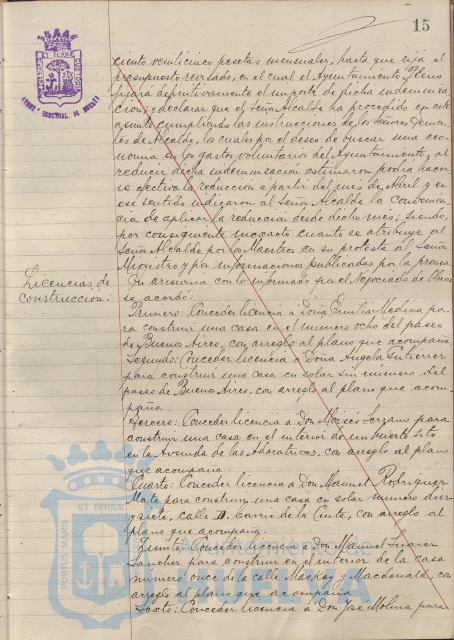 15
ciento veinticinco pesetas mensuales, hasta que rija el
presupuesto revisado, en el cual el Ayuntamiento Pleno
fijará definitivamente el importe de dicha indemniza-
ción; y declarar que el Señor Alcalde ha procedido en este
asunto cumpliendo las instrucciones de los Señores Tenien-
tes de Alcalde, los cuales por el deseo de buscar una eco-
nomía en los gastos voluntarios del Ayuntamiento, al
reducir dicha indemnización estimaron podía hacer
se efectiva la reducción a partir del mes de Abril y en
ese sentido indicaron al Señor Alcalde la convenien-
cia de aplicar la reducción desde dicho mes; siendo,
por consiguiente inexacto cuanto se atribuye al
Señor Alcalde por los Maestros en su protesta al Señor
Ministro y por informaciones publicadas por la prensa
Licencias de
construccion:
En armonía con lo informado por el Negociado de Obras
se acordó:
Primero: Conceder licencia a Doña Emilia Medina pa-
ra construir una casa en el numero ocho del paseo
de Buenos Aires, con arreglo al plano que acompaña
Segundo: Conceder licencia a Doña Angela Gutierrez
para construir una casa en solar sin numero del
paseo de Buenos Aires, con arreglo al plano que acom-
paña.
Tercero: Conceder licencia a Don Moisés Serrano para
construir una casa en el interior de un huerto sito
en la Avenida de las Adoratrices, con arreglo al plano
que acompaña.
Cuarto: Conceder licencia a Don Manuel Rodriguez
Mata para construir una casa en solar numero diez
y siete, calle D. barrio de la Cinta, con arreglo al
plano que acompaña.
Quinto: Conceder licencia a Don Manuel Suarez
Sanchez para construir en el interior de la casa
numero once de la calle Mackay y Macdonald, con
arreglo al plano que acompaña
Sexto: Conceder licencia a Don José Molina para
PORTUS MARIS
ET TERRA
Ayuntamiento de